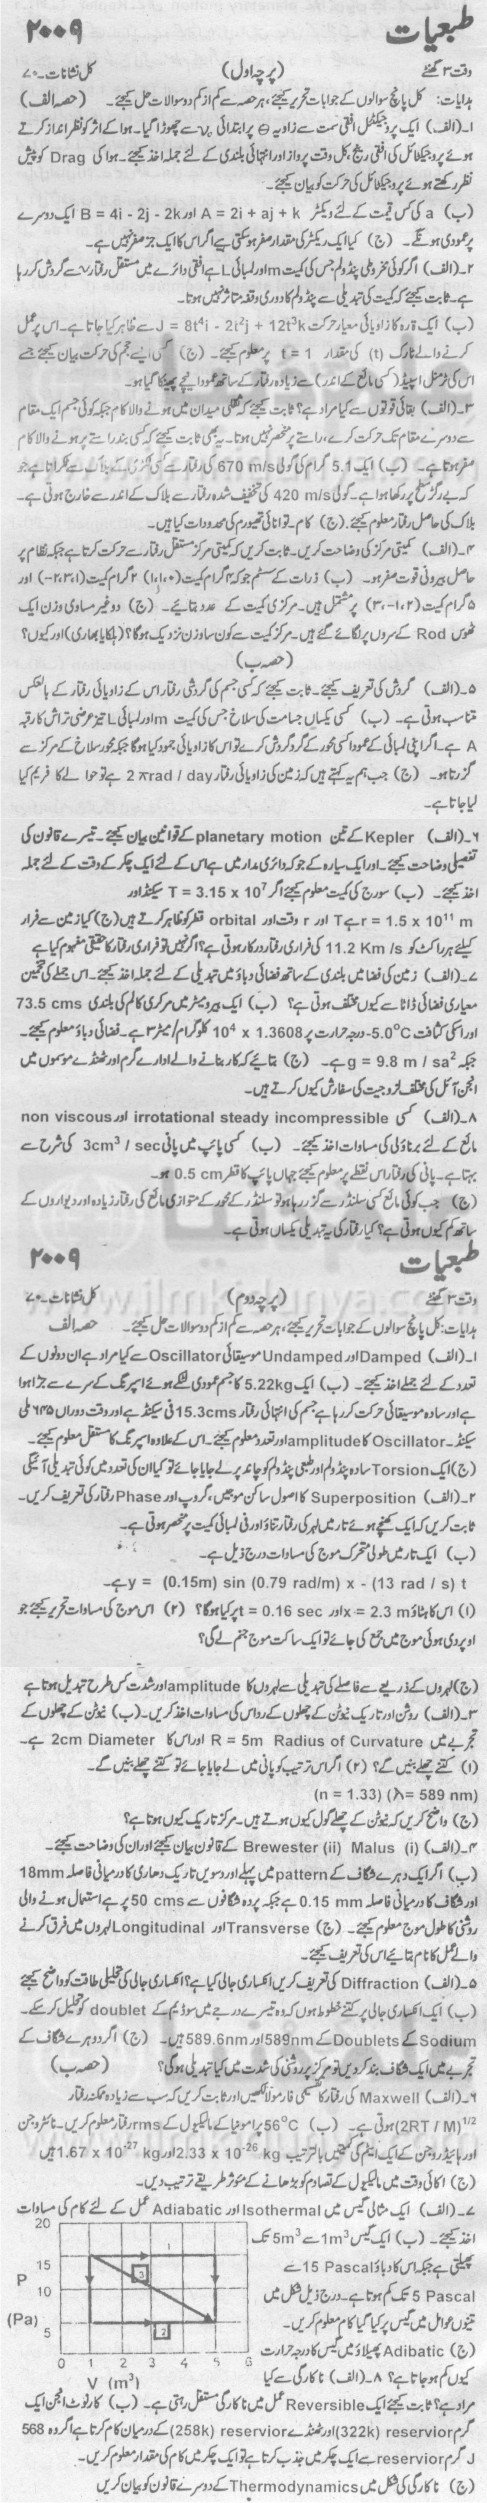 طبعیات ۲۰۰۹
وقت ۳ گھنٹے (پرچہ اول) کل نشانات۔۷۰
ہدایات: کل پانچ سوالوں کے جوابات تحریر کیجئے، ہر حصہ سے کم از کم دو سوالات حل کیجئے۔ (حصہ الف)
۱۔(الف) ایک پروجیکٹل افقی سمت سے زاویہ Θ پر ابتدائی سے چھوڑا گیا۔ ہوا کے اثر کو نظر انداز کرتے
ہوئے پروجیکٹائل کی افقی رینج، کل وقت پرواز اور انتہائی بلندی کے لئے جملہ اخذ کیجئے۔ ہوا کی Drag کو پیش
نظر رکھتے ہوئے پروجیکٹائل کی حرکت کو بیان کیجئے۔
(ب) a کی کس قیمت کے لئے ویکٹر A = 2i + aj + k اور B = 4i - 2j - 2k ایک دوسرے
پر عمودی ہونگے۔ (ج) کیا ایک ویکٹر کی مقدار صفر ہوسکتی ہے اگر اس کا ایک جز صفر نہیں ہے۔
۲۔(الف) اگر کوئی مخروطی پنڈولم جس کی کیت m اور لمبائی L ہے افقی دائرے میں مستقل رفتار سے گردش کر رہا
ہے۔ ثابت کیجئے کہ کیت کی تبدیلی سے پنڈولم کا دوری وقفہ متاثر نہیں ہوتا۔
(ب) ایک ذرہ کا زاویائی معیار حرکت J = 8t⁴i - 2t²j + 12t³k سے ظاہر کیا جاتا ہے۔ اس پر عمل
کرنے والے ٹارک (t) کی مقدار t = 1 پر معلوم کیجئے۔ (ج) کسی ایسے جسم کی حرکت بیان کیجئے جسے
اس کی ٹرمنل اسپیڈ (کسی مائع کے اندر) سے زیادہ رفتار کے ساتھ عمودا نیچے پھینکا گیا ہو۔
۳۔(الف) بقائی قوتوں سے کیا مراد ہے؟ ثابت کیجئے کہ ثقلی میدان میں ہونے والا کام جبکہ کوئی جسم ایک مقام
سے دوسرے مقام تک حرکت کرے، راستے پر منحصر نہیں ہوتا۔ یہ بھی ثابت کیجئے کہ کسی بند راستے پر ہونے والا کام
صفر ہوتا ہے۔ (ب) ایک 5.1 گرام کی گولی 670 m/s کی رفتار سے کسی لکڑی کے بلاک سے ٹکراتا ہے جو
کہ بے رگڑ سطح پر رکھا ہوا ہے۔ گولی 420 m/s کی تخفیف شدہ رفتار سے بلاک کے اندر سے خارج ہوتی ہے۔
بلاک کی حاصل رفتار معلوم کیجئے۔ (ج) کام۔توانائی تھیورم کی محدودات کیا ہیں۔
۴۔(الف) کمیتی مرکز کی وضاحت کریں۔ ثابت کریں کہ کمیتی مرکز مستقل رفتار سے حرکت کرتا ہے جبکہ نظام پر
حاصل بیرونی قوت صفر ہو۔ (ب) ذرات کے سسٹم جو کہ ۲ گرام کیت (۱،۱،۰) ۲ گرام کیت (۲،۳،۱−) اور
۵ گرام کیت (۳،−۱،۲) پر مشتمل ہیں۔ مرکزی کمیت کے عدد بتائیے۔ (ج) دو غیر مساوی وزن ایک
ٹھوس Rod کے سروں پر لگائے گئے ہیں۔ مرکز کیت سے کون سا وزن نزدیک ہوگا؟ (ہلکا یا بھاری) اور کیوں؟
(حصہ ب)
۵۔(الف) گردش کی تعریف کیجئے۔ ثابت کیجئے کہ کسی جسم کی گردشی رفتار اس کے زاویائی رفتار کے بالعکس
متناسب ہوتی ہے۔ (ب) کسی یکساں جسامت کی سلاخ جس کی کیت m اور لمبائی L تیز عرضی تراش کا رقبہ
A ہے۔ اگر اپنی لمبائی کے عمودا کسی محور کے گرد گردش کرے تو اس کا زاویائی جمود کیا ہوگا جبکہ محور سلاخ کے مرکز سے
گزرتا ہو۔ (ج) جب ہم یہ کہتے ہیں کہ زمین کی زاویائی رفتار 2 πrad / day ہے تو حوالے کا فریم کیا
لیا جاتا ہے۔
۶۔(الف) Kepler کے تین planetary motion کے قوانین بیان کیجئے۔ تیسرے قانون کی
تفصیلی وضاحت کیجئے۔ اور ایک سیارہ کے جو کہ دائری مدار میں ہے اس کے لئے ایک چکر کے وقت کے لئے جملہ
اخذ کیجئے۔ (ب) سورج کی کیت معلوم کیجئے اگر T = 3.15 x 10⁷ سیکنڈ اور
r = 1.5 x 10¹¹ m ہے T اور r وقت اور orbital قطر کو ظاہر کرتے ہیں (ج) کیا زمین سے فرار
کیلئے ہر راکٹ کو 11.2 Km /s کی فراری رفتار درکار ہوتی ہے؟ اگر نہیں تو فراری رفتار کا حقیقی مفہوم کیا ہے
۷۔(الف) زمین کی فضا میں بلندی کے ساتھ فضائی دباؤ میں تبدیلی کے لئے جملہ اخذ کیجئے۔ اس جملے کی تخمین
معیاری فضائی ڈاٹا سے کیوں مختلف ہوتی ہے؟ (ب) ایک بیرومیٹر میں مرکری کالم کی بلندی 73.5 cms
اور اسکی کثافت -5.0°C درجہ حرارت پر 1.3608 x 10⁴ کلوگرام/میٹر۳ ہے۔ فضائی دباؤ معلوم کیجئے۔
جبکہ g = 9.8 m / sa² ہے۔ (ج) بتائیے کہ کار بنانے والے ادارے گرم اور ٹھنڈے موسموں میں
انجن آئل کی مختلف لزوجیت کی سفارش کیوں کرتے ہیں۔
۸۔(الف) کسی irrotational steady incompressible اور non viscous
مائع کے لئے برنولی کی مساوات اخذ کیجئے۔ (ب) کسی پائپ میں پانی 3cm³ / sec کی شرح سے
بہتا ہے۔ پانی کی رفتار اس نقطے پر معلوم کیجئے جہاں پائپ کا قطر 0.5 cm ہو۔
(ج) جب کوئی مائع کسی سلنڈر سے گزر رہا ہو تو سلنڈر کے محور کے متوازی مائع کی رفتار زیادہ اور دیواروں کے
ساتھ کم کیوں ہوتی ہے؟ کیا رفتار کی یہ تبدیلی یکساں ہوتی ہے۔
طبعیات ۲۰۰۹
وقت ۳ گھنٹے (پرچہ دوم) کل نشانات۔۷۰
www.ilmkidunya.com
ہدایات: کل پانچ سوالوں کے جوابات تحریر کیجئے، ہر حصہ سے کم از کم دو سوالات حل کیجئے۔ حصہ الف
۱۔(الف) Damped اور Undamped موسیقائی Oscillator سے کیا مراد ہے ان دونوں کے
تعدد کے لئے جملے اخذ کیجئے۔ (ب) ایک 5.22kg کا جسم عمودی لٹکے ہوئے اسپرنگ کے سرے سے جڑا ہوا
ہے اور سادہ موسیقائی حرکت کر رہا ہے جسم کی انتہائی رفتار 15.3cms فی سیکنڈ ہے اور وقت دوراں ۶۴۵ ملی
سیکنڈ۔ Oscillator کا amplitude اور تعدد معلوم کیجئے۔ اس کے علاوہ اسپرنگ کا مستقل معلوم کیجئے۔
(ج) ایک Torsion سادہ پنڈولم اور طبعی پنڈولم کو چاند پر لے جایا جائے تو کیا ان کی تعدد میں کوئی تبدیلی آئیگی
۲۔(الف) Superposition کا اصول ساکن موجیں، گروپ اور Phase رفتار کی تعریف کریں۔
ثابت کریں کہ ایک کھنچے ہوئے تار میں لہر کی رفتار تناؤ اور فی لمبائی کیت پر منحصر ہوتی ہے۔
(ب) ایک تار میں طولی متحرک موج کی مساوات درج ذیل ہے۔
y = (0.15m) sin (0.79 rad/m) x - (13 rad / s) t ہے۔
(۱) اس کا ہٹاؤ x = 2.3 m اور t = 0.16 sec پر کیا ہوگا؟ (۲) اس موج کی مساوات تحریر کیجئے جو
اوپر دی ہوئی موج میں جمع کی جائے تو ایک ساکت موج جنم لے گی؟
(ج) لہروں کے ذریعے سے فاصلے کی تبدیلی سے لہروں کا amplitude اور شدت کس طرح تبدیل ہوتا ہے
۳۔(الف) روشن اور تاریک نیوٹن کے چھلوں کے رداس کی مساوات اخذ کریں۔ (ب) نیوٹن کے چھلوں کے
تجربے میں R = 5m Radius of Curvature اور اس کا 2cm Diameter ہے۔
(۱) کتنے چھلے بنیں گے؟ (۲) اگر اس ترتیب کو پانی میں لے جایا جائے تو کتنے چھلے بنیں گے۔
(n = 1.33) (λ= 589 nm)
(ج) واضح کریں کہ نیوٹن کے چھلے گول کیوں ہوتے ہیں۔ مرکز تاریک کیوں ہوتا ہے؟
۴۔(الف) Brewester (ii) Malus (i) کے قانون بیان کیجئے اور ان کی وضاحت کیجئے۔
(ب) اگر ایک دہرے شگاف کے pattern میں پہلے اور دسویں تاریک دھاری کا درمیانی فاصلہ 18mm
اور شگاف کا درمیانی فاصلہ 0.15 mm ہے جبکہ پردہ شگافوں سے 50 cms پر ہے استعمال ہونے والی
روشنی کا طول موج معلوم کیجئے۔ (ج) Transverse اور Longitudinal لہروں میں فرق کرنے
والے عمل کا نام بتائیے اس کی تعریف کیجئے۔
۵۔(الف) Diffraction کی تعریف کریں انکساری جالی کیا ہے؟ انکساری جالی کی تحلیلی طاقت کو واضح کیجئے
(ب) ایک انکساری جالی پر کتنے خطوط ہوں کہ وہ تیسرے درجے میں سوڈیم کے doublet کو تحلیل کر سکے۔
Sodium کے Doublets 589nm اور 589.6nm ہیں۔ (ج) اگر دوہرے شگاف کے
تجربے میں ایک شگاف بند کر دیں تو مرکز پر روشنی کی شدت میں کیا تبدیلی ہوگی؟ (حصہ ب)
۶۔(الف) Maxwell کی رفتار کا تقسیمی فارمولا لکھیں اور ثابت کریں کہ سب سے زیادہ ممکنہ رفتار
(2RT / M)^1/2 ہوتی ہے۔ (ب) 56°C پر امونیا کے مالیکیول کے rms رفتار معلوم کریں۔ نائٹروجن
اور ہائیڈروجن کے ایک ایٹم کی کمیتیں بالترتیب 2.33 x 10⁻²⁶ kg اور 1.67 x 10⁻²⁷ kg ہیں
(ج) اکائی وقت میں مالیکیول کے تصادم کو بڑھانے کے مؤثر طریقے ترتیب دیں۔
۷۔(الف) ایک مثالی گیس میں Isothermal اور Adiabatic عمل کے لئے کام کی مساوات
اخذ کیجئے۔ (ب) ایک گیس 1m³ سے 5m³ تک
پھیلتی ہے جبکہ اس کا دباؤ 15 Pascal سے
5 Pascal تک کم ہوتا ہے۔ درج ذیل شکل میں
تینوں عوامل میں گیس پر کیا گیا کام معلوم کریں۔
(ج) Adibatic پھیلاؤ میں گیس کا درجہ حرارت
کیوں کم ہو جاتا ہے؟ ۸۔(الف) ناکارگی سے کیا
20
15
P
10
(Pa)
5
1
3
2
0 1 2 3 4 5 6
V (m³)
مراد ہے؟ ثابت کیجئے ایک Reversible عمل میں ناکارگی مستقل رہتی ہے۔ (ب) کارنوٹ انجن ایک
گرم reservior (322k) اور ٹھنڈے reservior (258k) کے درمیان کام کرتا ہے اگر وہ 568
J گرم reservior سے ایک چکر میں جذب کرتا ہے تو ایک چکر میں کام کی مقدار معلوم کریں۔
(ج) ناکارگی کی شکل میں Thermodynamics کے دوسرے قانون کو بیان کریں